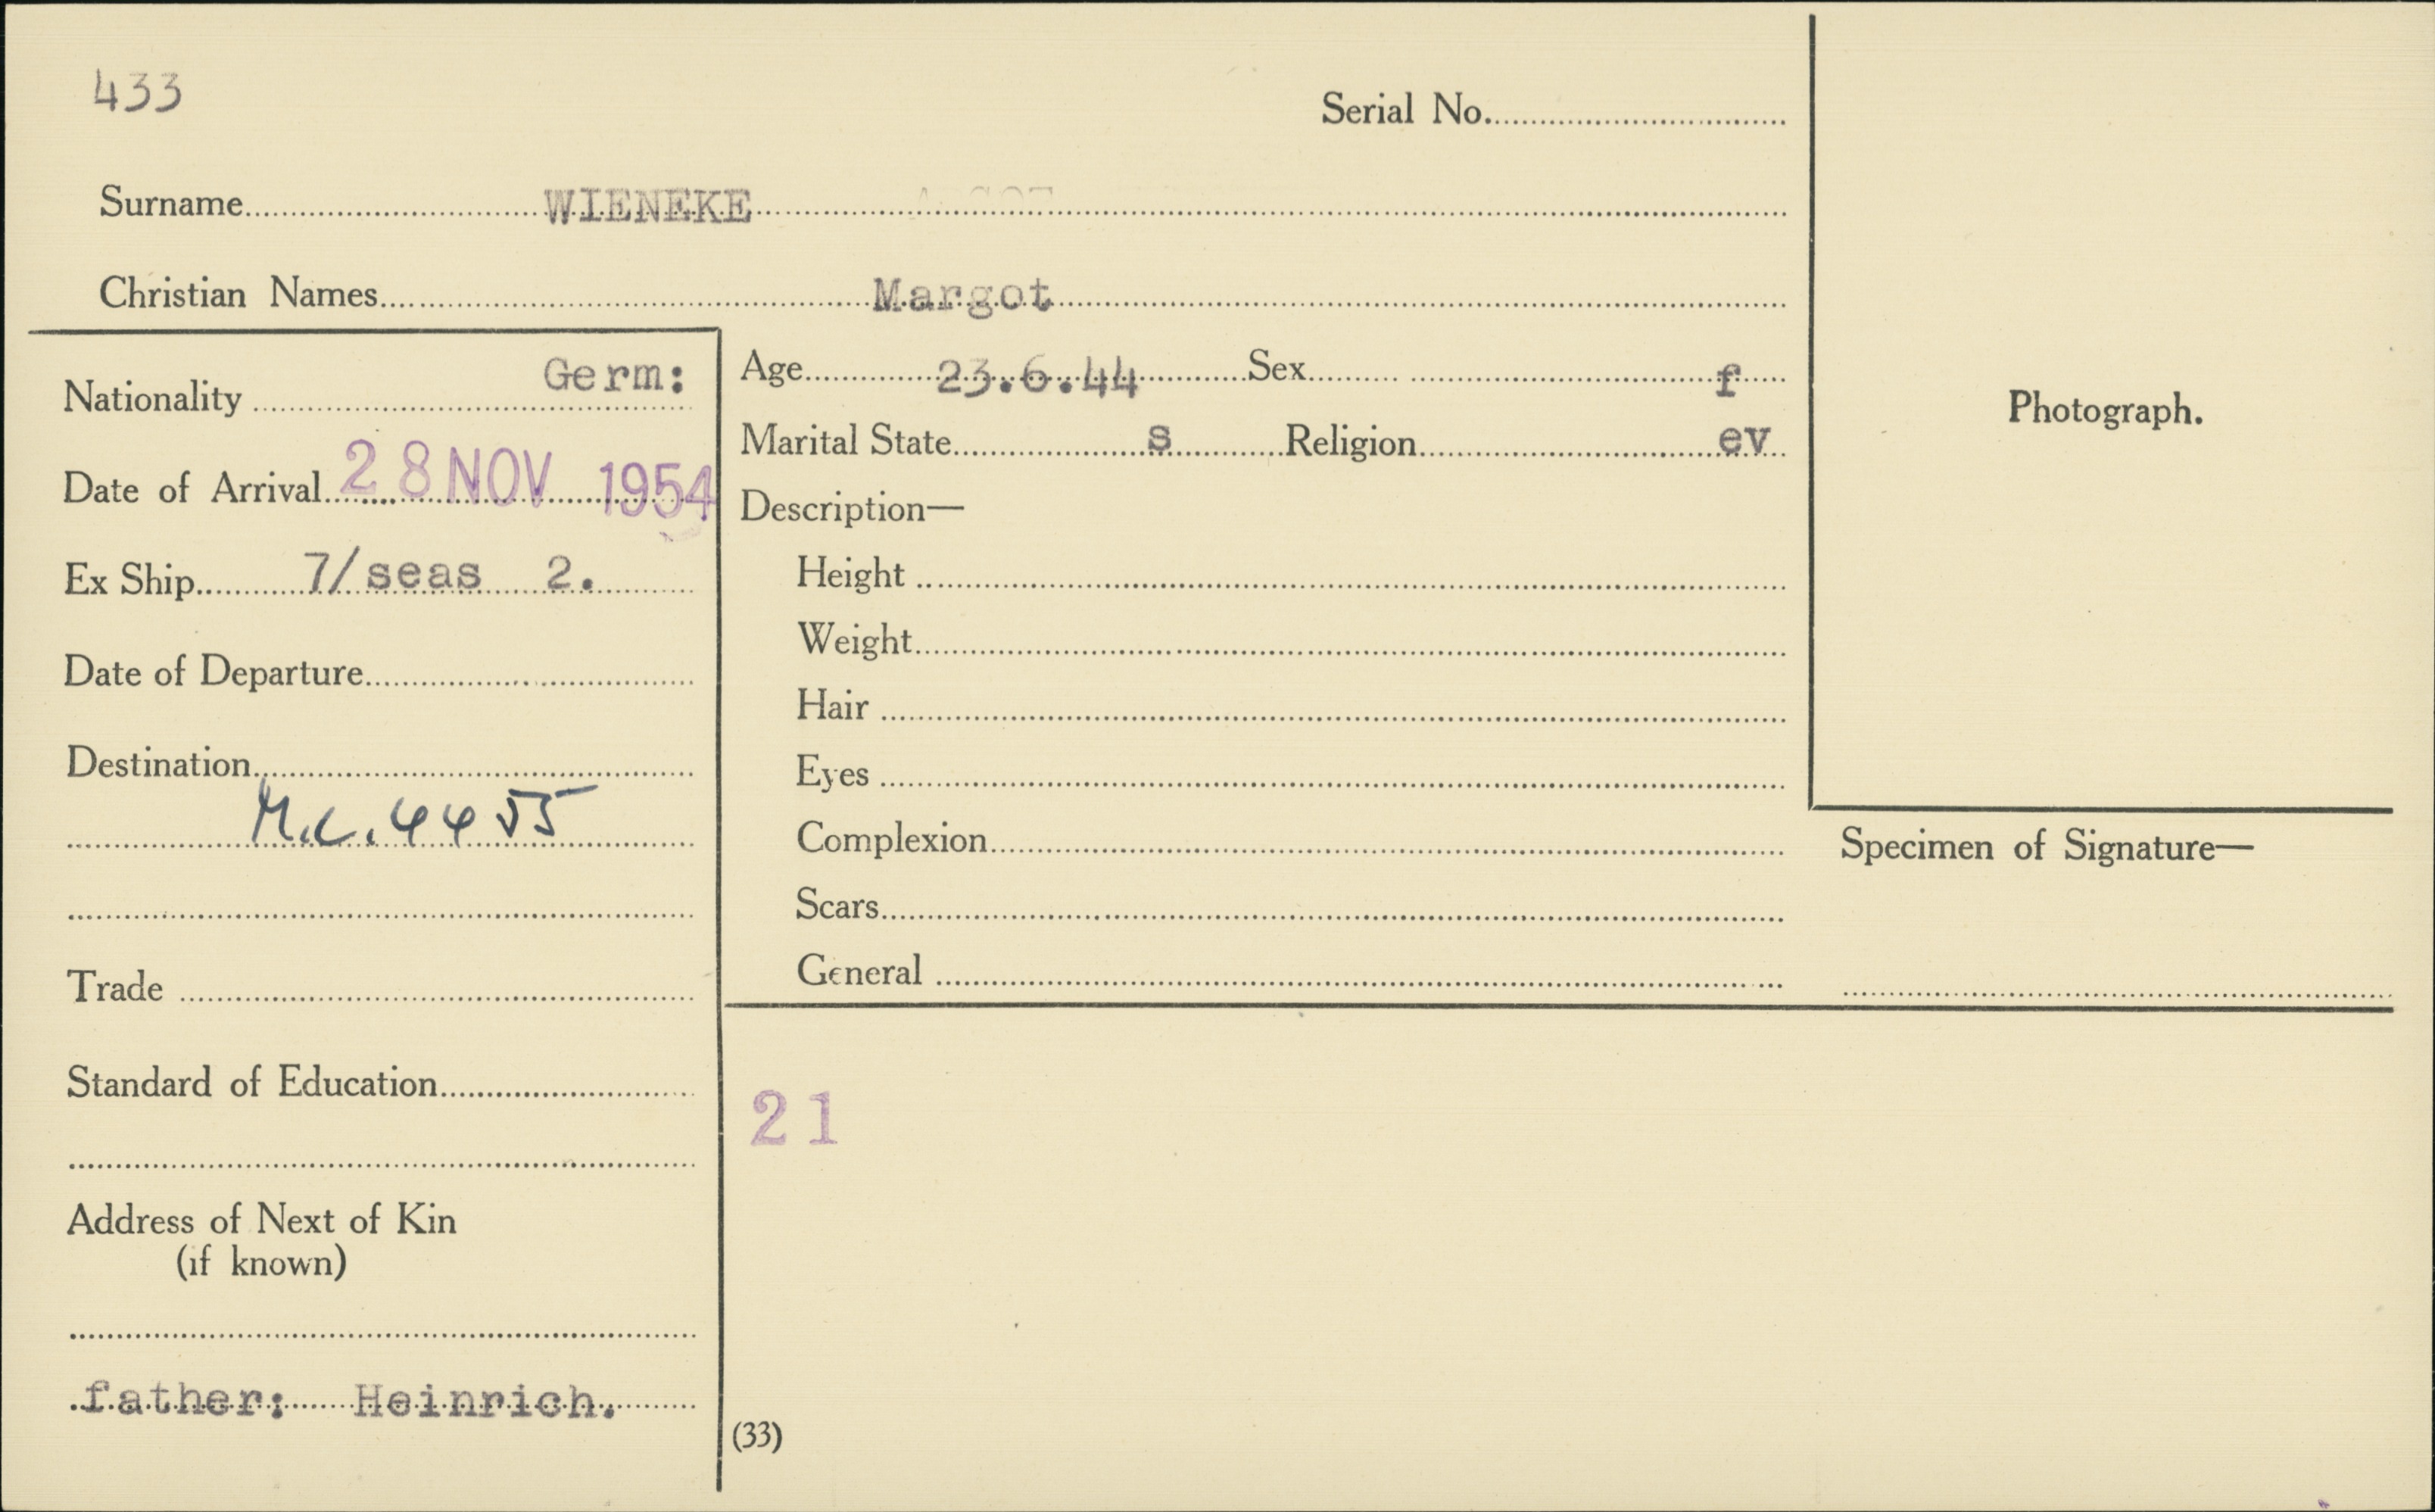 433
Serial No.
Surname WIENEKE
Christian Names Margot
Nationality Germ:
Date of Arrival 28 NOV 1954
Ex Ship 7/seas 2.
Date of Departure
Destination
M.C. 4455
Trade
Standard of Education
Address of Next of Kin
(if known)
father: Heinrich.
Age 23.6.44 Sex f
Marital State s Religion ev
Description—
Height
Weight
Hair
Eyes
Complexion
Scars
General
Photograph.
Specimen of Signature—
21
(33)